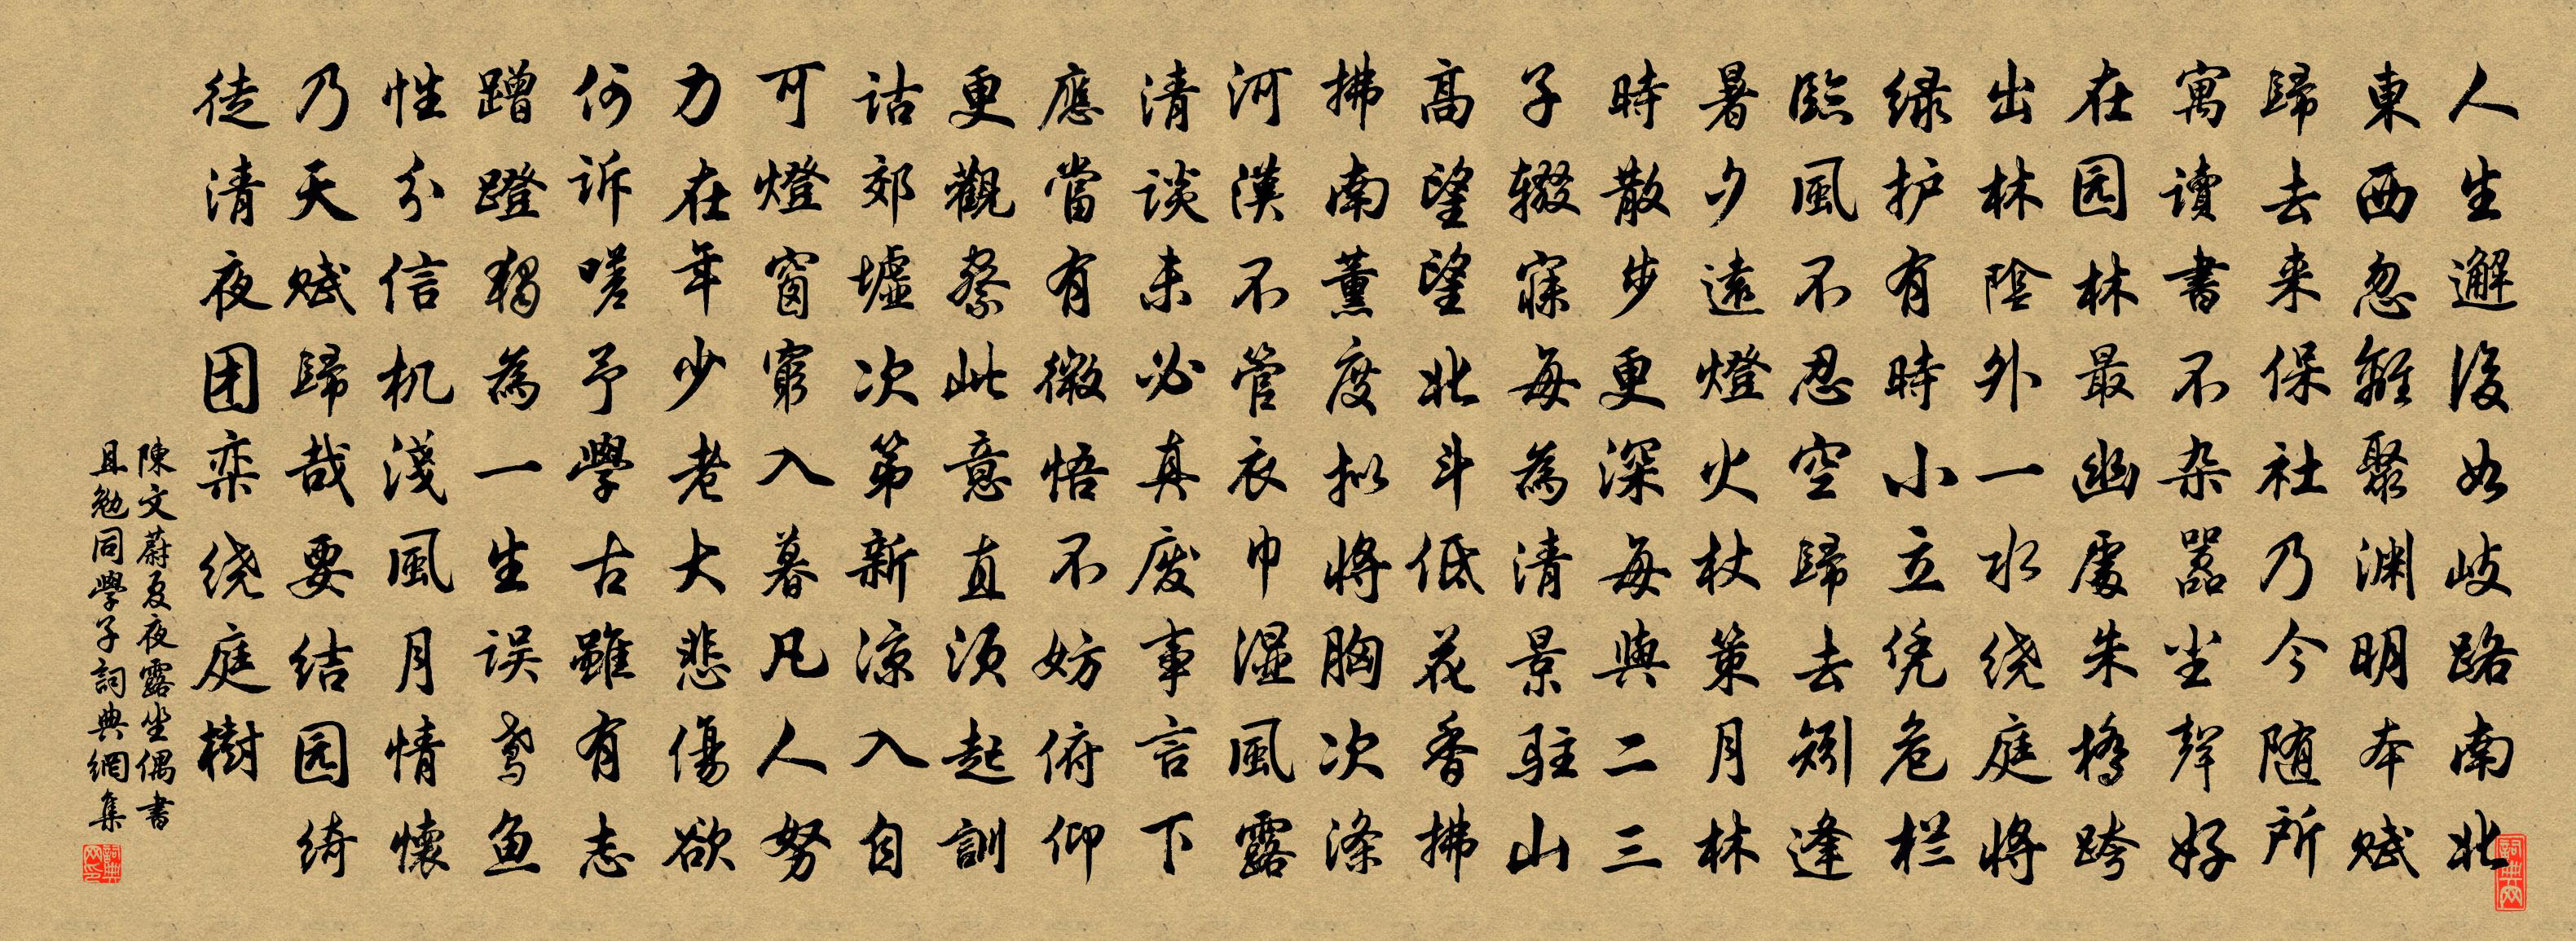 人生邂逅如岐路南北
東西忽離聚渊明本赋
歸去来保社乃今随所
寓讀書不杂嚣尘聲好
在园林最幽處朱橋跨
出林陰外一水绕庭将
绿护有時小立凭危栏
臨風不忍空歸去矧逢
暑夕遠燈火杖策月林
時散步更深每與二三
子辍寐每為清景駐山
高望望北斗低花香拂
拂南薰度拟将胸次滌
河漢不管衣巾湿風露
清談未必真废事言下
應當有微悟不妨俯仰
更觀察此意直须起訓
诂郊墟次第新凉入自
可燈窗窮入暮凡人努
力在年少老大悲傷欲
何诉嗟予學古雖有志
蹭蹬独為一生误鸢鱼
性分信机淺風月情懷
乃天赋歸哉要结园绮
徒清夜团栾绕庭樹
陳文蔚夏夜露坐偶書
且勉同學子詞典網集
詞典网
詞典网印